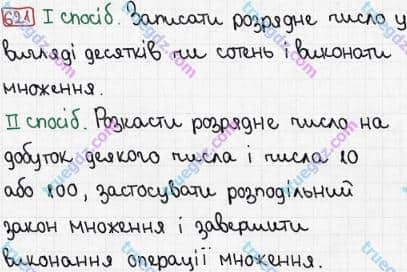 621 I спосіб. Записати розрядне число у
вигляді десятків чи сотень і виконати
множення.
II спосіб. Розкласти розрядне число на
добуток деякого числа і числа 10
або 100, застосувати розподільний
закон множення і завершити
виконання операції множення.
truegdz.com